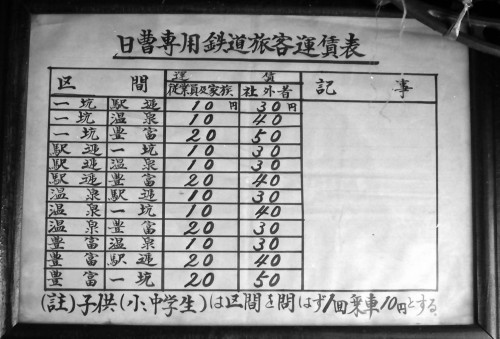 日曹専用鉄道旅客運賃表
区間 運賃 記事
従業員及家族 社外者
一坑 駅逓 10円 30円
一坑 温泉 10 40
一坑 豊富 20 50
駅逓 一坑 10 30
駅逓 温泉 10 30
駅逓 豊富 20 40
温泉 駅逓 10 30
温泉 一坑 10 40
温泉 豊富 20 30
豊富 温泉 10 30
豊富 駅逓 20 40
豊富 一坑 20 50
(註)子供(小、中学生)は区間を問はず1回乗車10円とする。